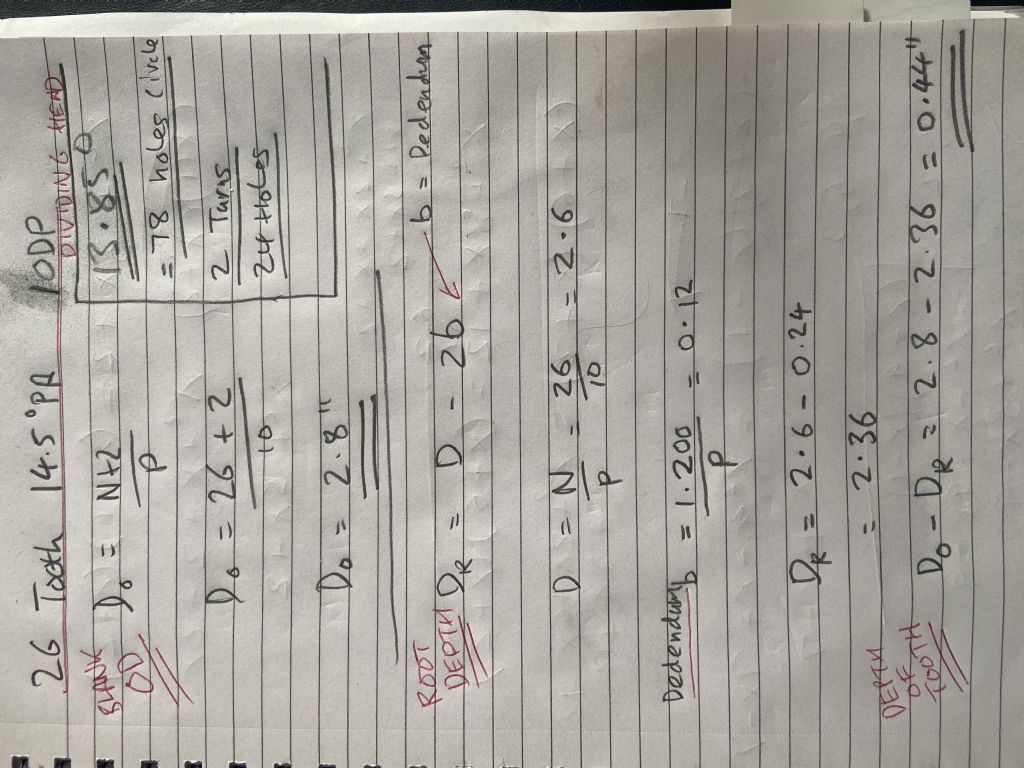 26 Tooth 14.5° PA 10DP
DIVIDING HEAD
BLANK
OD
D₀ = N+2
P
13.85°
= 78 holes Circle
D₀ = 26 + 2
10
2 Turns
24 Holes
D₀ = 2.8"
ROOT
DEPTH
D_R = D - 2b
b = Dedendum
D = N = 26 = 2.6
P 10
Dedendum b = 1.200 = 0.12
P
D_R = 2.6 - 0.24
= 2.36
DEPTH
OF
TOOTH
D₀ - D_R = 2.8 - 2.36 = 0.44"